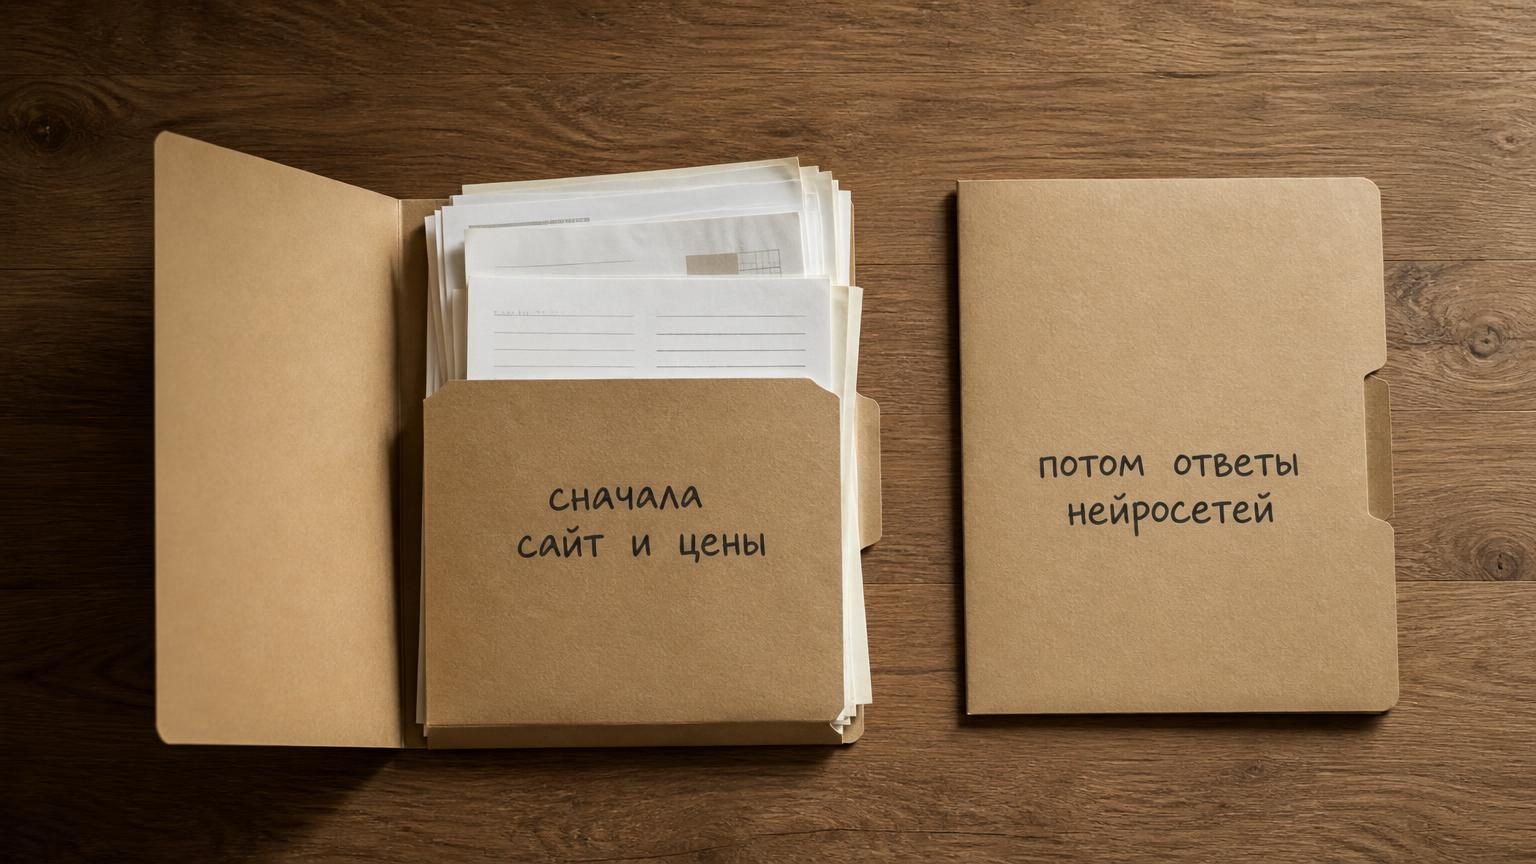 сначала
сайт и цены
потом ответы
нейросетей